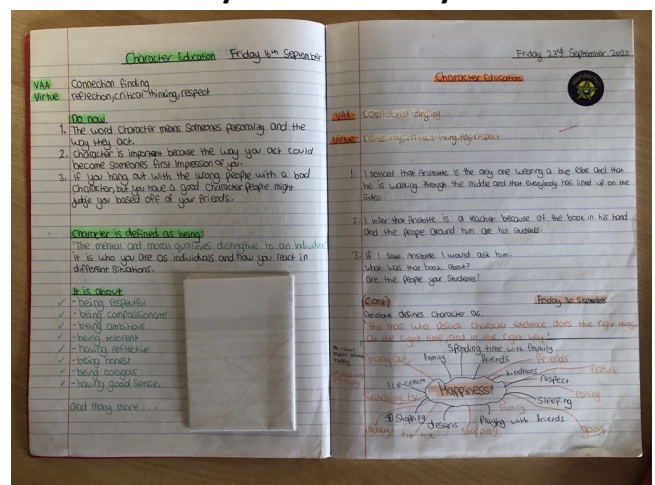 Character Education Friday 16th September
VAA Connection finding
Virtue reflection, critical thinking, respect
Do now
1. The word character means someones personality and the
way they act.
2. Character is important because the way you act could
become someones first impression of you.
3. if you hang out with the wrong people with a bad
character, but you have a good character people might
judge you based off of your friends.
Character is defined as being:
'The mental and moral qualities distinctive to an individual'
it is who you are as individuals and how you react in
different situations.
It is about
- being respectful
- being compassionate
- being ambitious
- being tolerent
- having reflective
- being honest
- being coragous
- having good sense.
and many more...
Friday 23rd September 2022
Character Education
VAA: Connection finding
Virtue:
1. I noticed that Aristotle is the only one wearing a blue robe and that
he is walking through the middle and that everybody has lined up on the
sides.
2. I infer that Aristotle is a teacher because of the book in his hand
and the people around him are his students.
3. if I saw Aristotle I would ask him.
What was that book about?
are the people your students?
(cont) Friday 30 September
Aristotle defines character as.
the man who posses character does the right thing,
at the right time and in the right way.
Spending time with family
family friends friends
kindness nature
ice-cream respect
watching tv Happiness! eating
sleeping
family
Shopping desserts Playing with friends
money shopping going